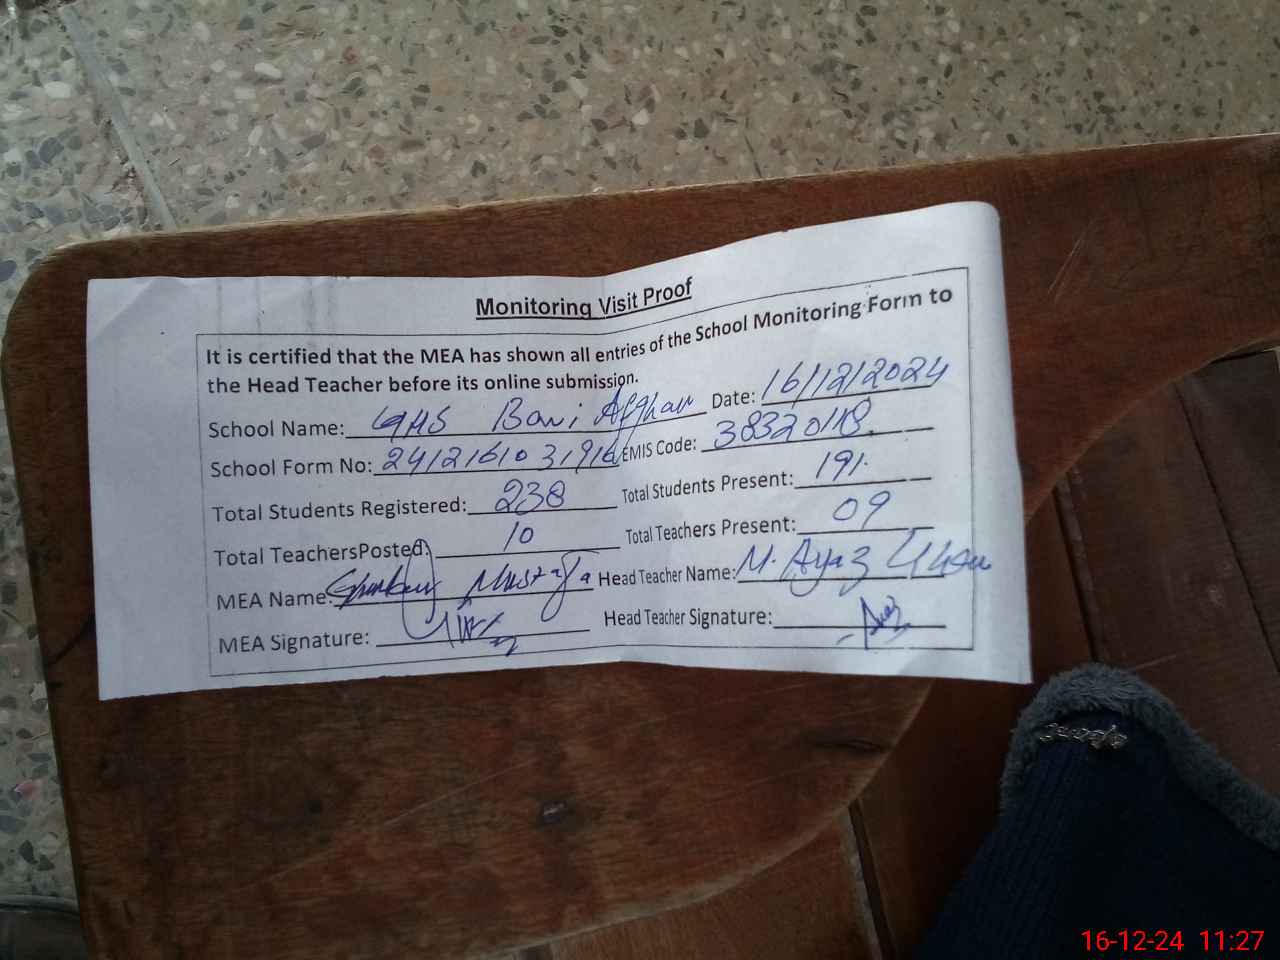 Monitoring Visit Proof
It is certified that the MEA has shown all entries of the School Monitoring Form to
the Head Teacher before its online submission.
School Name: GHS Bani Afghan Date: 16/12/2024
School Form No: 2412161031916 EMIS Code: 38320118
Total Students Registered: 238 Total Students Present: 191
Total TeachersPosted: 10 Total Teachers Present: 09
MEA Name: Mustafa Head Teacher Name: M. Ayaz Khan
MEA Signature: Head Teacher Signature:
16-12-24 11:27